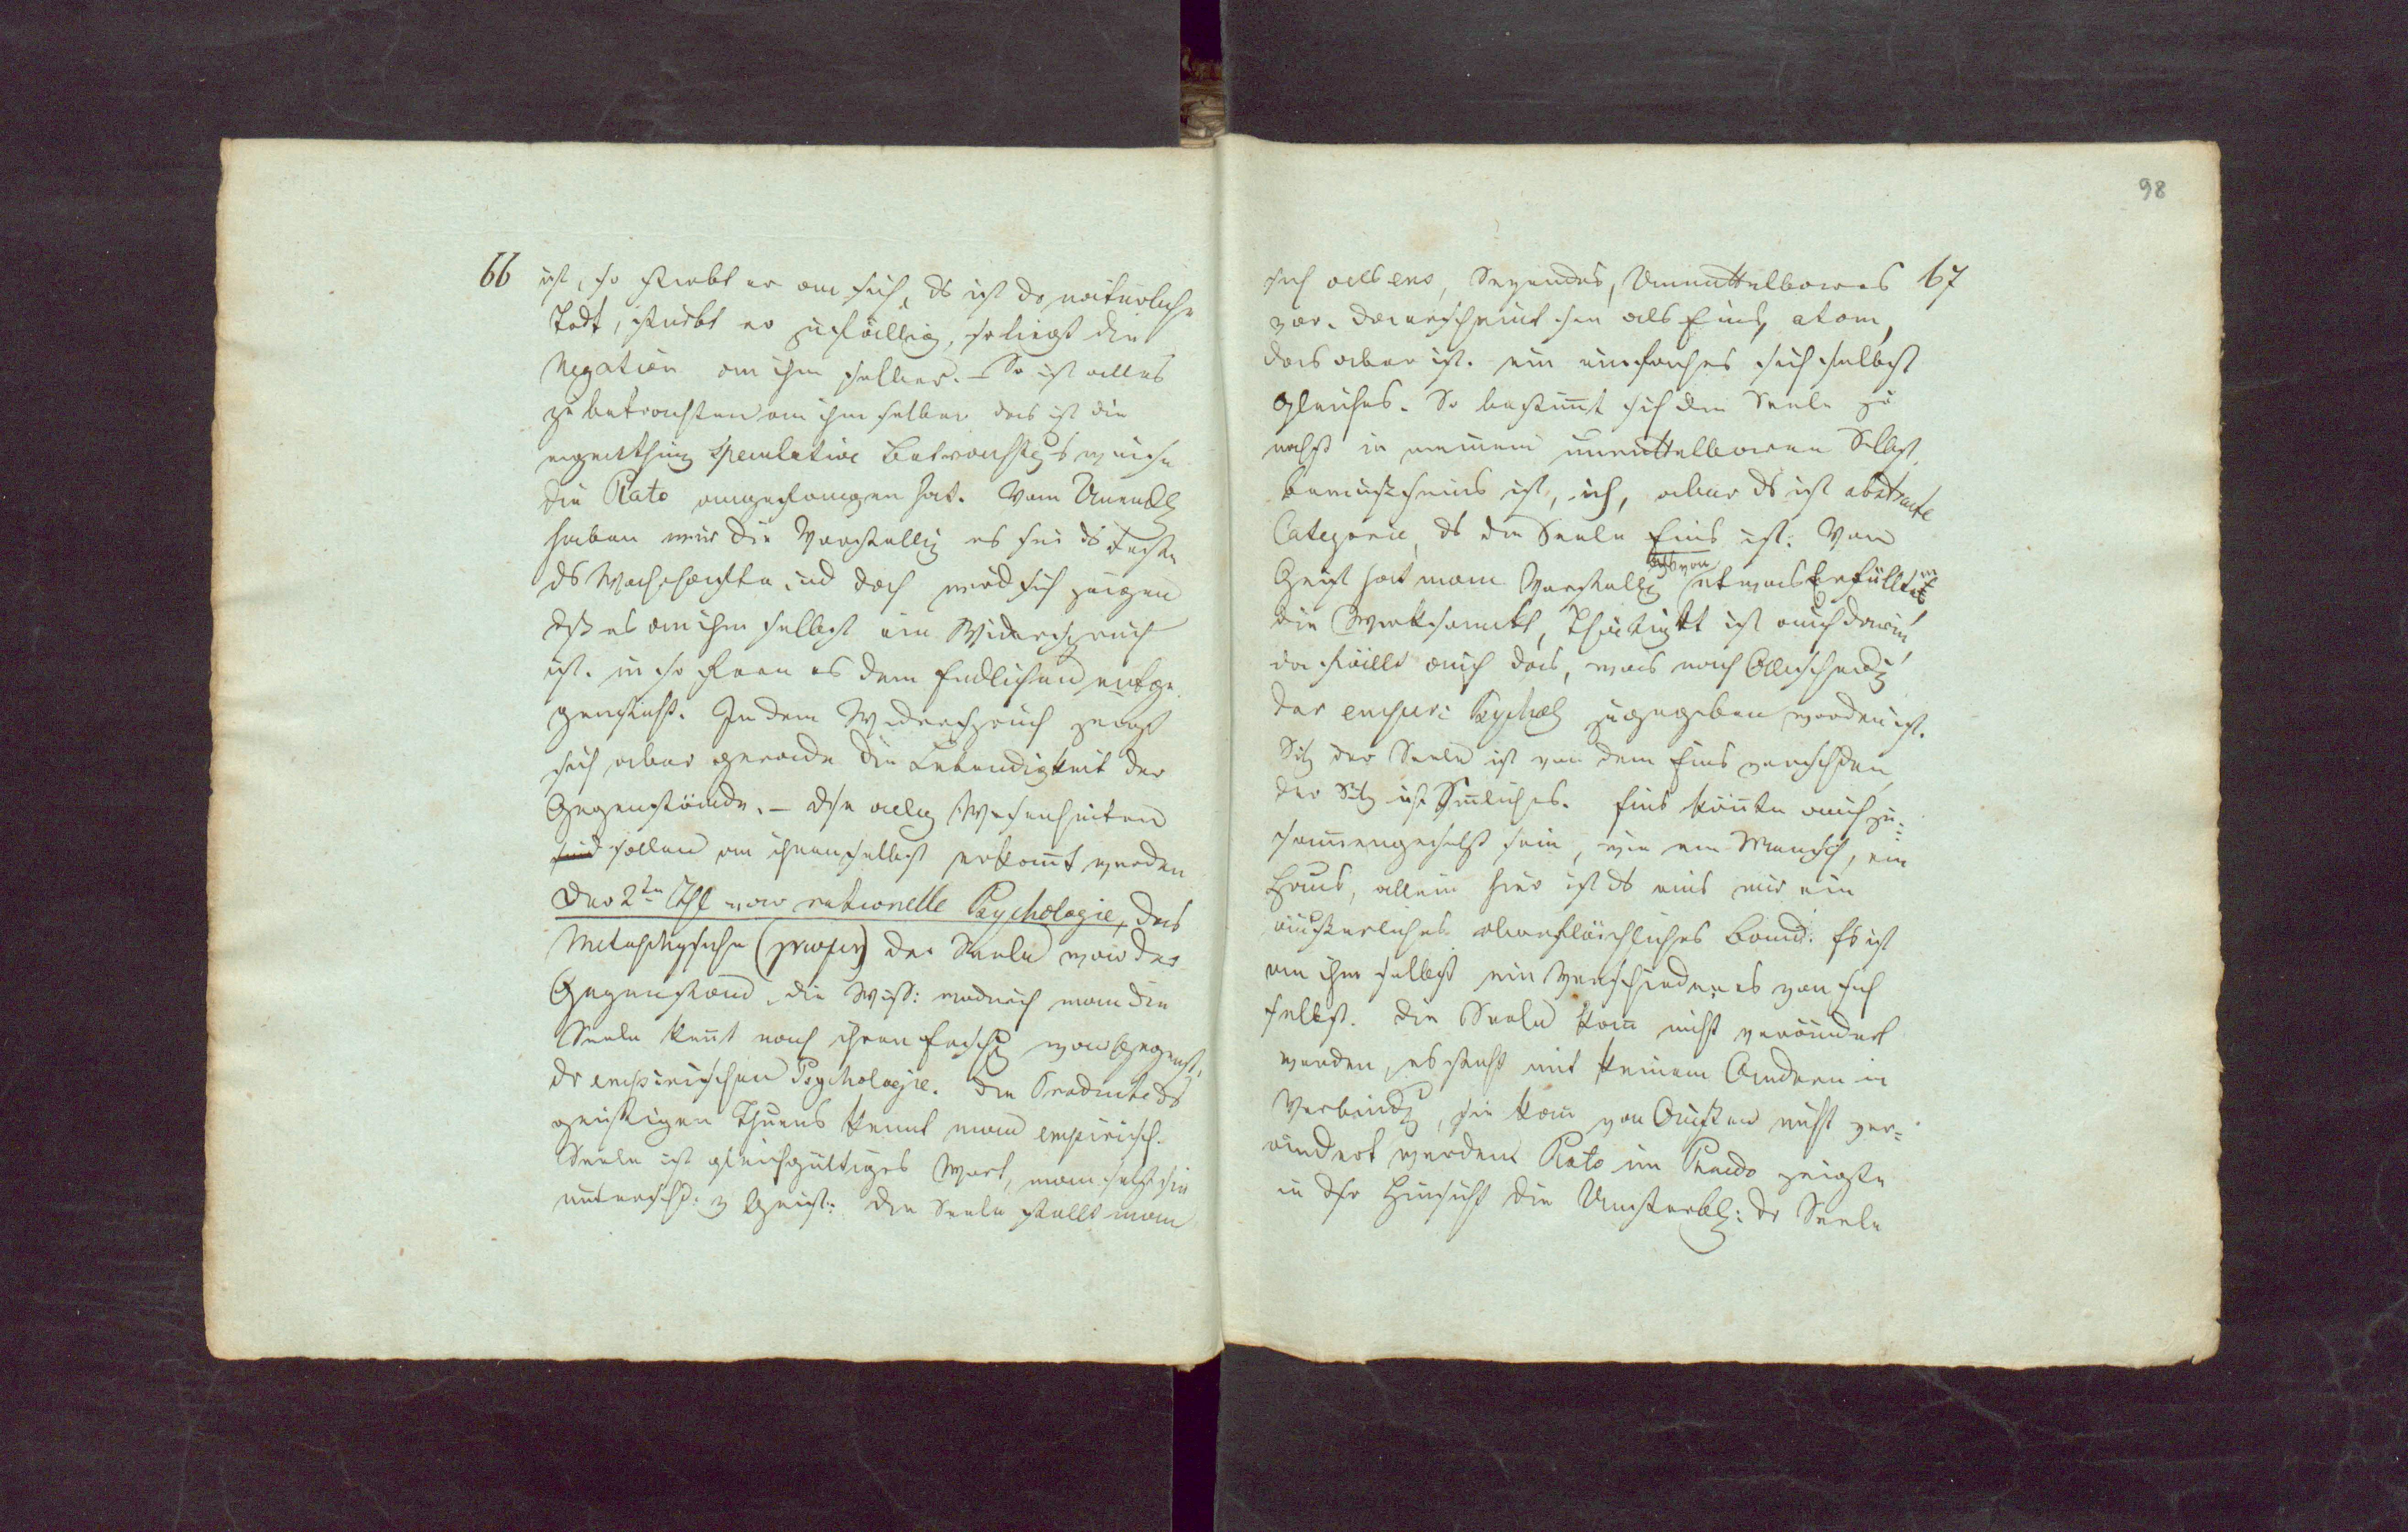 66
ist, so stirbt er an sich, ds ist dr natürliche
Todt, stirbt er zufällig, so liegt die
Negation an ihm selber. – So ist alles
zu betrachten an ihm selber das ist die
eigentthüm speculative Betrachtgs weise
die Plato angefangen hat. Vom Unendl
haben wir die Vorstellg es sei ds Feste
ds Wahrhafte, und doch wird sich zeigen
dß es an ihm selbst ein Widerspruch
ist. in so fern es dem Endlichen entge
gensteht. In dem Widerspruch zeigt
sich aber gerade die Lebendigkeit der
Gegenstände. – Dse allg Wesenheiten
sind sollen an ihnen selbst erkannt werden
Der 2te Thl war rationelle Psychologie, das
Metaphysische der Seele war der
Gegenstand. die Wiss: wodurch man die
Seele kennt nach ihren Erschg war Gegenst.
dr empirischen Psychologie. Die Producte ds
geistigen Thuns kennt man empirisch.
Seele ist gleichgültiges Wort, man setzt sie
untersch: Geist: die Seele stellt man
98
67
sich als ens, Seyendes, Unmittelbares
vor. da erscheint sie als Eins, atom,
das aber ist. ein einfaches sich selbst
gleiches. So bestimmt sich die Seele zu
nächst in meinem unmittelbaren Selbst
bewußtseins ist, ich, aber ds ist abstracte
Categorie, ds die Seele Eins ist. Vom
Geist hat man Vorstellg als von etwas Erfülltem
die Wirksamkt, Thätigkt ist auch darin,
da fällt auch das, was nach Abscheidg
der empiri Psychol zugegeben worden ist.
Sitz der Seele ist von dem Eins verschden,
der Sitz ist Sinnliches. Eins könnte auch zu=
sammengesetzt sein, wie ein Mensch, ein
Haus, allein hier ist ds eins nur ein
äußerliches oberflächliches Band. Es ist
an ihm selbst ein Verschiedenes von sich
selbst. Die Seele kann nicht verändert
werden, es steht mit keinem Andern in
Verbindg, sie kann von Außen nicht ver=
ändert werden Plato im Phaedo zeigte
in dsr Hinsicht die Unsterbl: dr Seele